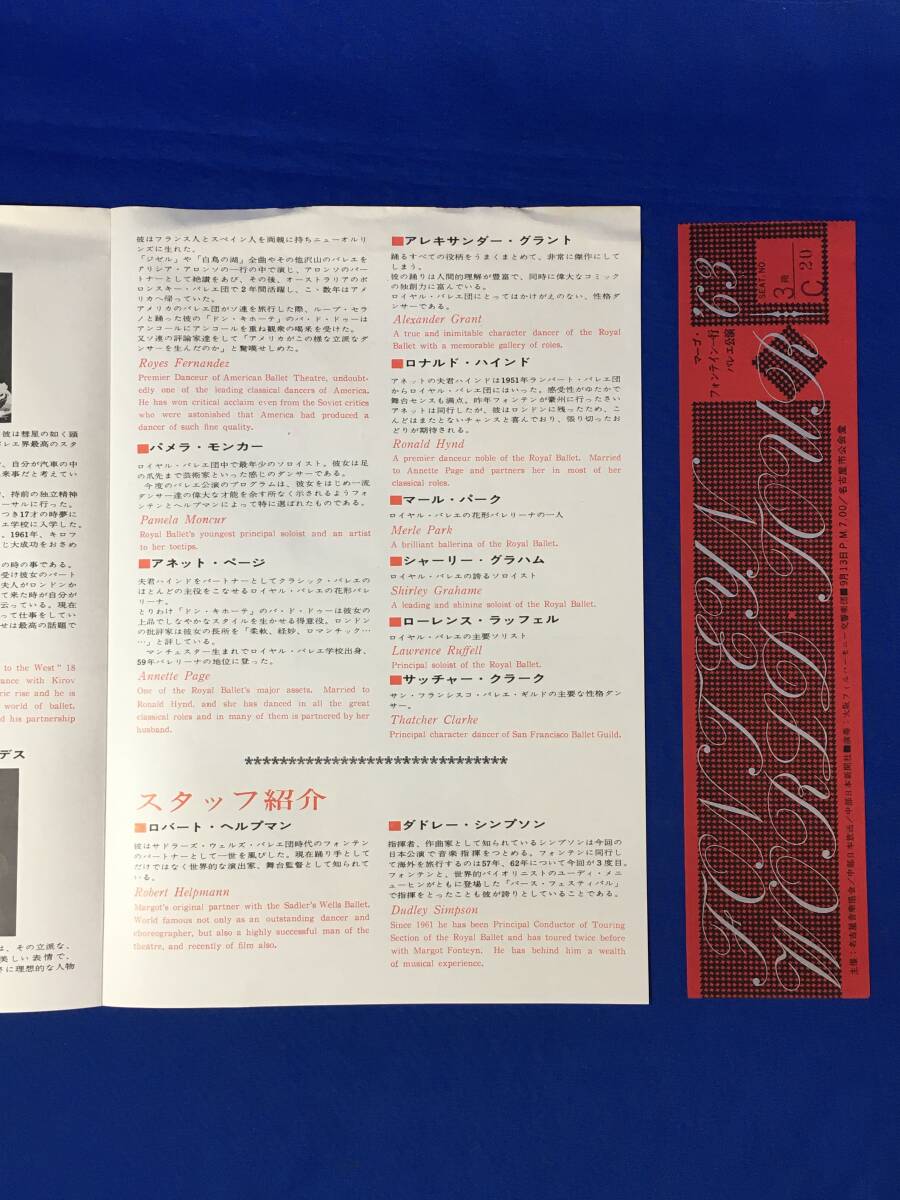 彼は彗星の如く頭
バレエ界最高のスタ
、自分が汽車の中
来事だと考えてい
、持前の独立精神
ーサルに行った。
つき17才の時夢に
エ学校に入学した。
。1961年、キロフ
じ大成功をおさめ
の時の事である。
受け彼女のパート
夫人がロンドンか
て来た時が自分が
云っている。現在
って仕事をしてい
せは最高の話題で
to the West" 18
ance with Kirov
ric rise and he is
world of ballet.
d his partnership
デス
は、その立派な、
美しい表情で、
に理想的な人物
彼はフランス人とスペイン人を両親に持ちニューオルリ
ンズに生れた。
「ジゼル」や「白鳥の湖」全曲やその他沢山のバレエを
アリシア・アロンソの一行の中で演じ、アロンソのパー
トナーとして絶讃をあび、その後、オーストラリアのボ
ロンスキー・バレエ団で2年間活躍し、こゝ数年はアメ
リカへ帰っていた。
アメリカのバレエ団がソ連を旅行した際、ループ・セラ
ノと踊った彼の「ドン・キホーテ」のパ・ド・ドゥーは
アンコールにアンコールを重ね観衆の喝釆を受けた。
又ソ連の評論家達をして「アメリカがこの様な立派なダ
ンサーを生んだのか」と驚嘆せしめた。
Royes Fernandez
Premier Danceur of American Ballet Theatre, undoubt-
edly one of the leading classical dancers of America.
He has won critical acclaim even from the Soviet critics
who were astonished that America had produced a
dancer of such fine quality.
■パメラ・モンカー
ロイヤル・バレエ団中で最年少のソロイスト。彼女は足
の爪先まで芸術家といった感じのダンサーである。
今度のバレエ公演のプログラムは、彼女をはじめ一流
ダンサー達の偉大な才能を余す所なく示されるようフォ
ンテンとヘルプマンによって特に選ばれたものである。
Pamela Moncur
Royal Ballet's youngest principal soloist and an artist
to her toetips.
■アネット・ページ
夫君ハインドをパートナーとしてクラシック・バレエの
ほとんどの主役をこなせるロイヤル・バレエの花形バレ
リーナ。
とりわけ「ドン・キホーテ」のパ・ド・ドゥーは彼女の
上品でしなやかなスタイルを生かせる得意役。ロンドン
の批評家は彼女の長所を「柔軟、軽妙、ロマンチック…
…」と評している。
マンチェスター生まれでロイヤル・バレエ学校出身、
59年バレリーナの地位に登った。
Annette Page
One of the Royal Ballet's major assets. Married to
Ronald Hynd, and she has danced in all the great
classical roles and in many of them is partnered by her
husband.
■アレキサンダー・グラント
踊るすべての役柄をうまくまとめて、非常に傑作にして
しまう。
彼の踊りは人間的理解が豊富で、同時に偉大なコミック
の独創力に富んでいる。
ロイヤル・バレエ団にとってはかけがえのない、性格ダ
ンサーである。
Alexander Grant
A true and inimitable character dancer of the Royal
Ballet with a memorable gallery of roles.
■ロナルド・ハインド
アネットの夫君ハインドは1951年ランバート・バレエ団
からロイヤル・バレエ団にはいった。感受性がゆたかで
舞台センスも満点。昨年フォンテンが豪州に行ったさい
アネットは同行したが、彼はロンドンに残ったため、こ
んどはまたとないチャンスと喜んでおり、張り切ったお
どりが期待される。
Ronald Hynd
A premier danceur noble of the Royal Ballet. Married
to Annette Page and partners her in most of her
classical roles.
■マール・パーク
ロイヤル・バレエの花形バレリーナの一人
Merle Park
A brilliant ballerina of the Royal Ballet.
■シャーリー・グラハム
ロイヤル・バレエの誇るソロイスト
Shirley Grahame
A leading and shining soloist of the Royal Ballet.
■ローレンス・ラッフェル
ロイヤル・バレエの主要ソリスト
Lawrence Ruffell
Principal soloist of the Royal Ballet.
■サッチャー・クラーク
サン・フランシスコ・バレエ・ギルドの主要な性格ダン
サー。
Thatcher Clarke
Principal character dancer of San Francisco Ballet Guild.
******************************
スタッフ紹介
■ロバート・ヘルプマン
彼はサドラーズ・ウェルズ・バレエ団時代のフォンテン
のパートナーとして一世を風びした。現在踊り手として
だけではなく世界的な演出家、舞台監督として知られて
いる。
Robert Helpmann
Margot's original partner with the Sadler's Wells Ballet.
World famous not only as an outstanding dancer and
choreographer, but also a highly successful man of the
theatre, and recently of film also.
■ダドレー・シンプソン
指揮者、作曲家として知られているシンプソンは今回の
日本公演で音楽指揮をつとめる。フォンテンに同行し
て海外を旅行するのは57年、62年について今回が3度目。
フォンテンと、世界的バイオリニストのユーディ・メニ
ューヒンがともに登場した「バース・フェスティバル」
で指揮をとったことも彼が誇りとしていることである。
Dudley Simpson
Since 1961 he has been Principal Conductor of Touring
Section of the Royal Ballet and has toured twice before
with Margot Fonteyn. He has behind him a wealth
of musical experience.
マーゴ・
フォンテイン一行
バレエ公演
'63
SEAT. NO
3階
C. 20
FONTEYN
WORLD TOUR
主催：名古屋音楽協会/中部日本放送/中部日本新聞社■演奏：大阪フィルハーモニー交響楽団■9月13日PM7.00/名古屋市公会堂